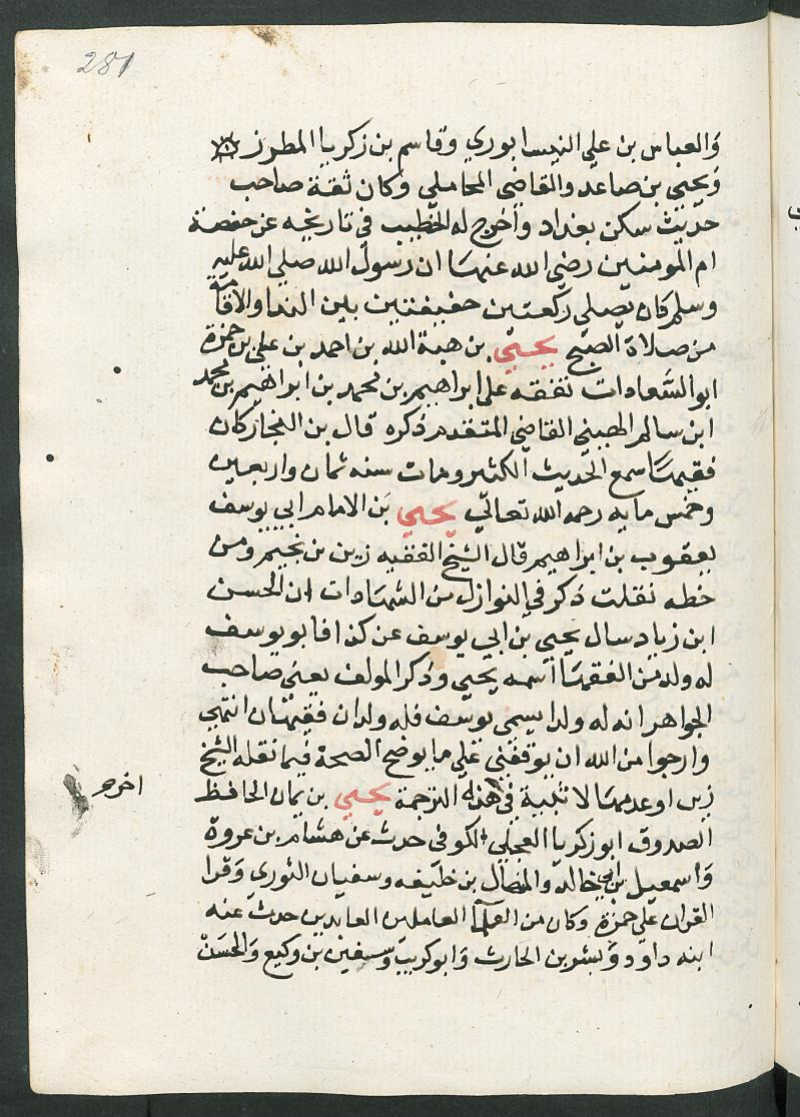 281
والعباس بن علي النيسابوري وقاسم بن زكريا المطرز
ويحيى بن صاعد والقاضي المحاملي وكان ثقة صاحب
حديث سكن بغداد واخرج له الخطيب في تاريخه عن حفصة
ام المومنين رضي الله عنها ان رسول الله صلي الله عليه
وسلم كان يصلي ركعتين خفيفتين بين الندا والاقامة
من صلاة الصبح يحيي بن هبة الله بن احمد بن علي بن حمزة
ابو السعادات تفقه علي ابراهيم بن محمد بن ابراهيم بن محمد
ابن سالم الهيتي القاضي المتقدم ذكره قال بن النجار كان
فقيها سمع الحديث الكثير ومات سنه ثمان واربعين
وخمس مايه رحمه الله تعالي يحيي بن الامام ابي يوسف
يعقوب بن ابراهيم قال الشيخ الفقيه زين بن نجيم ومن
خطه نقلت ذكر في النوازل من الشهادات ان الحسن
ابن زياد سال يحيي بن ابي يوسف عن كذا فابو يوسف
له ولد من الفقها اسمه يحيي وذكر المولف يعني صاحب
الجواهر انه له ولدا يسمي يوسف فله ولدان فقيهان انتهي
وارجوا من الله ان يوقفني علي ما يوضح الصحة فيما نقله الشيخ
زين او عدمها لا في هذه الترجمة يحيي بن يمان الحافظ
اخره
الصدوق ابو زكريا العجلي الكوفي حدث عن هشام بن عروة
واسمعيل بن ابي خالد والمنهال بن خليفه وسفيان الثوري وقرا
القران علي حمزة وكان من العلما العاملين العابدين حدث عنه
ابنه داود وبشر بن الحارث وابو كريب وسفين بن وكيع والحسن